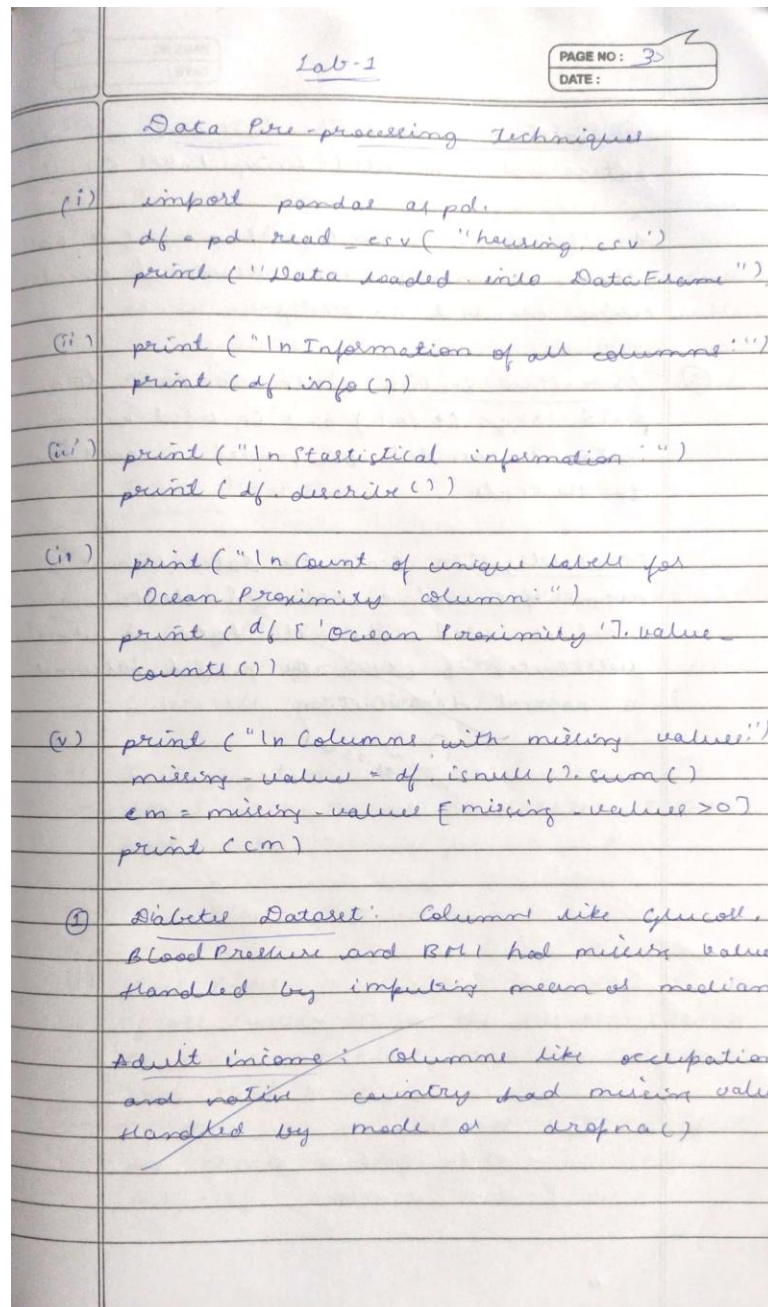 Lab-1
PAGE NO : 3
DATE :
Data Pre-processing Techniques
(i) import pandas as pd.
df = pd. read_csv ( "housing.csv")
print ("Data loaded into DataFrame")
(ii) print ("\n Information of all columns:")
print (df.info())
(iii) print ("\n Stastistical information :")
print (df.describe())
(iv) print ("\n Count of unique labels for
Ocean Proximity column:")
print (df['Ocean Proximity'].value_
counts())
(v) print ("\n Columns with missing values:")
missing-value = df.isnull().sum()
cm = missing-value [missing-value >0]
print (cm)
① Diabetes Dataset: Columns like Glucose,
Blood Pressure and BMI had missing value
Handled by imputing mean or median
Adult income: Columns like occupation
and native country had missing valu
Handled by mode or dropna()